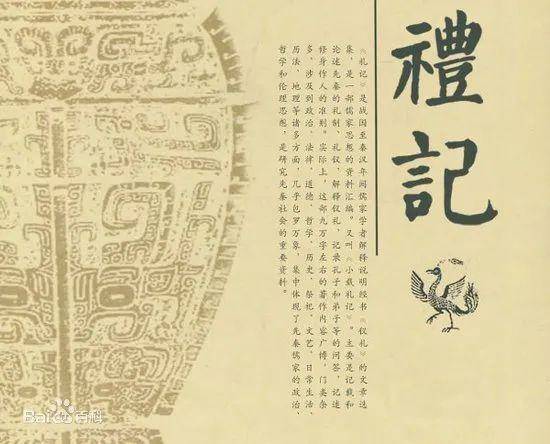 禮記
《礼记》是战国至秦汉年间儒家学者解释说明经书《仪礼》的文章选
集，是一部儒家思想的资料汇编。又叫《小戴礼记》。主要是记载和
论述先秦的礼制、礼仪，解释仪礼，记录孔子和弟子等的问答，记述
修身作人的准则。实际上，这部九万字左右的著作内容广博，门类杂
多，涉及到政治、法律、道德、哲学、历史、祭祀、文艺、日常生活、
历法、地理等诸多方面，几乎包罗万象，集中体现了先秦儒家的政治、
哲学和伦理思想，是研究先秦社会的重要资料。
Baidu百科